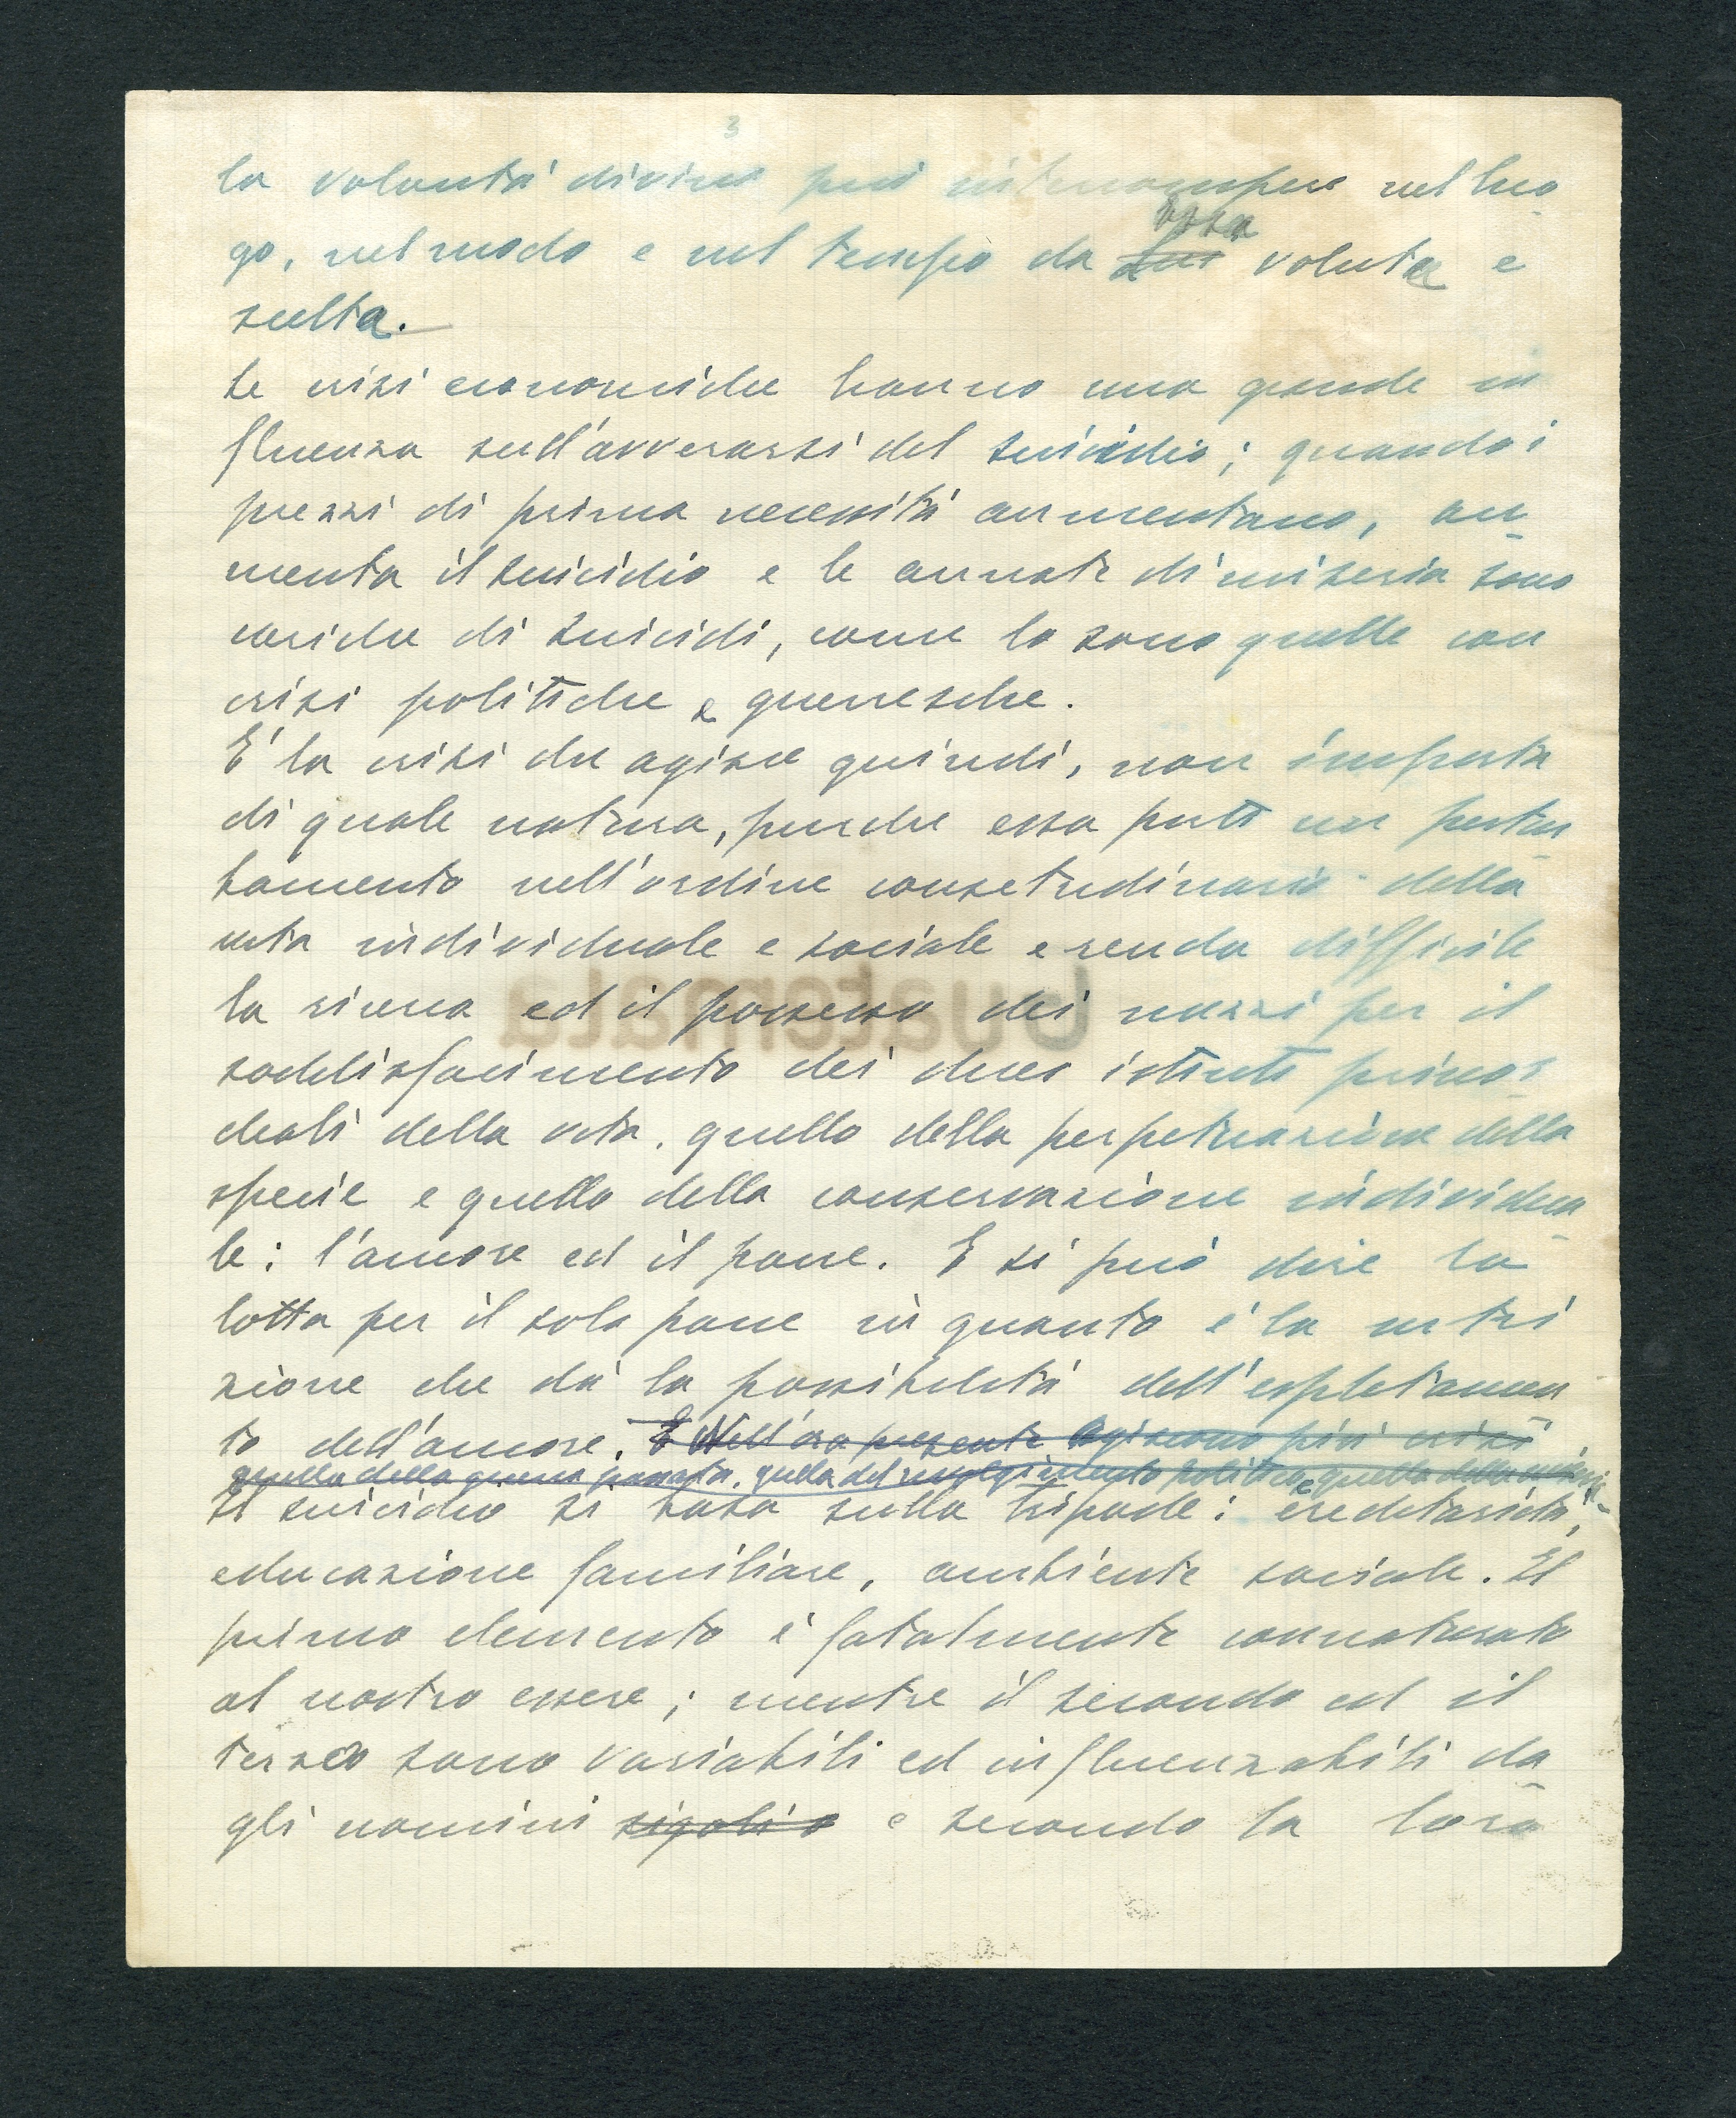 3
la volontà divina può interrompere nel luo
go, nel modo e nel tempo da essa voluta e
scelta.
Le crisi economiche hanno una grande in
fluenza sull'avverarsi del suicidio; quando i
prezzi di prima necessità aumentano, au
menta il suicidio e le annate di miseria sono
cariche di suicidi, come lo sono quelle con
crisi politiche e guerresche.
È la crisi che agisce quindi, non importa
di quale natura, purché essa porti un pertur
bamento nell'ordine consetudinario della
vita individuale e sociale e renda difficile
la ricerca ed il possesso dei mezzi per il
soddisfacimento dei due istinti primor
diali della vita, quello della perpetuazione della
specie e quello della conservazione individua
le: l'amore ed il pane. E si può dire la
lotta per il solo pane in quanto è la nutri
zione che dà la possibilità dell'espletamen
to dell'amore. E Nell'ora presente agiscono più crisi
quella della guerra passata, quella del rivolgimento politico e quella della miseria
Il suicidio si basa sulla tripode: ereditarietà,
educazione familiare, ambiente sociale. Il
primo elemento è fatalmente connaturato
al nostro essere; mentre il secondo ed il
terzo sono variabili ed influenzabili da
gli uomini e secondo la loro